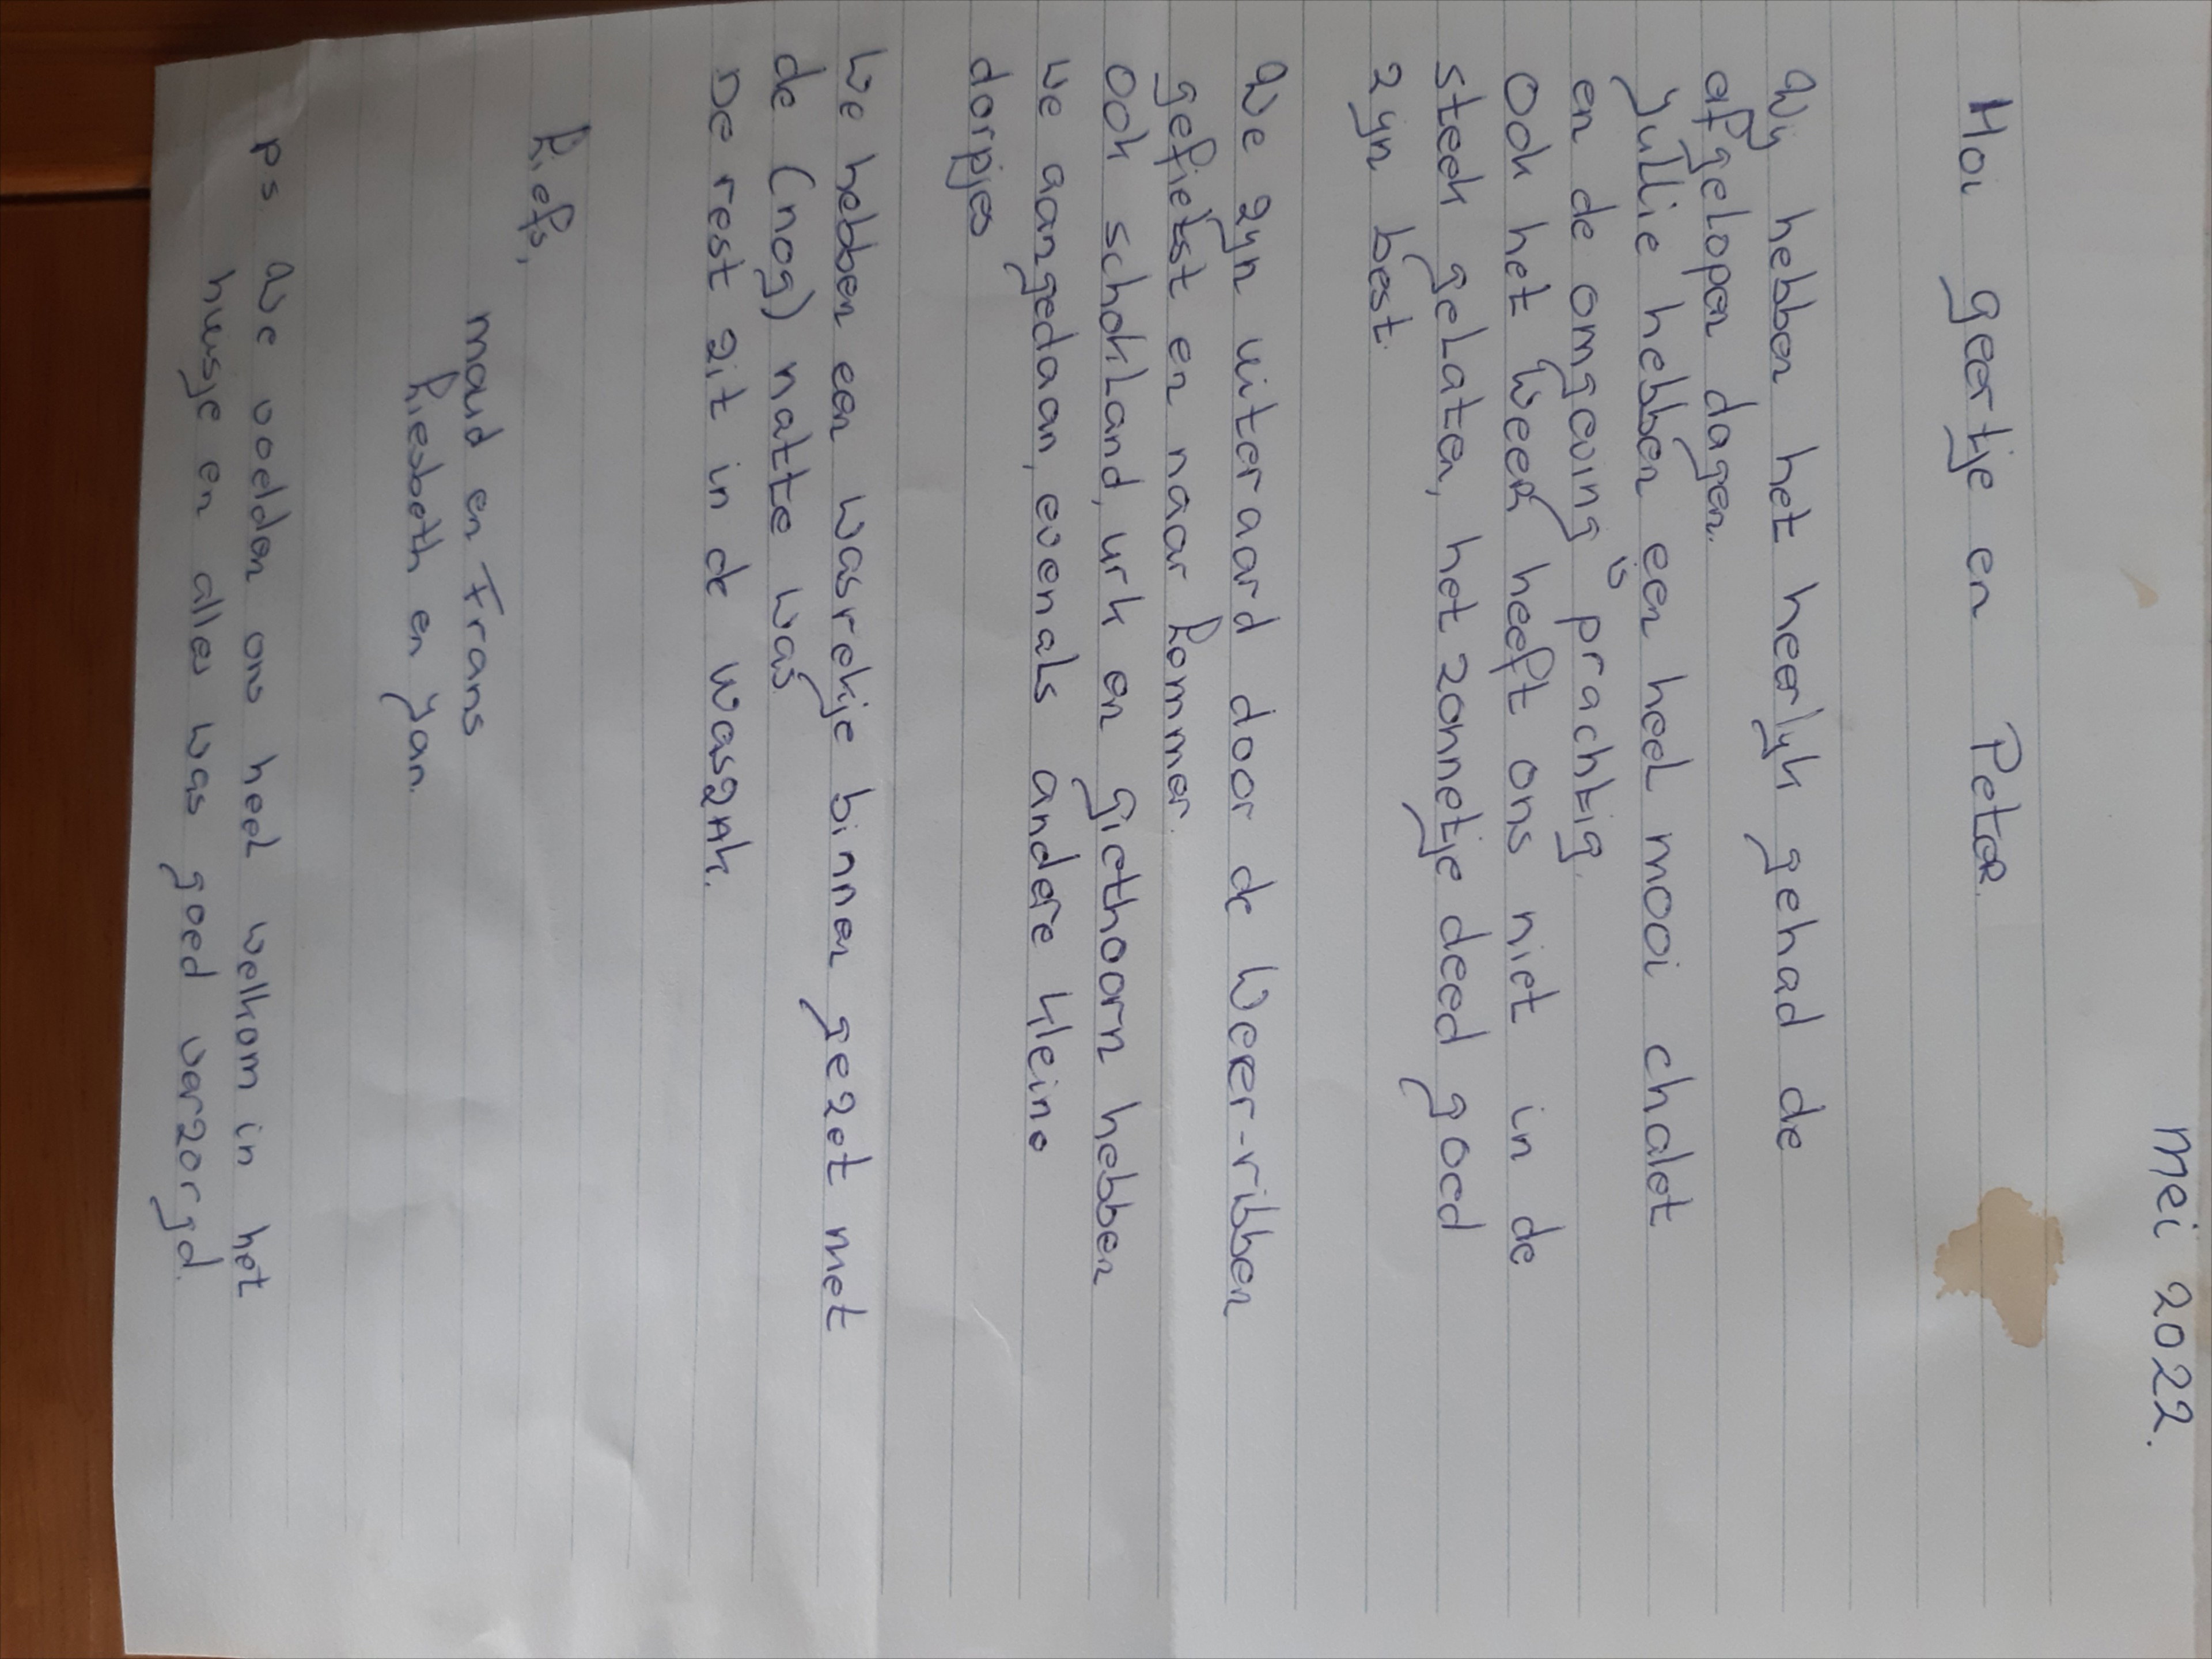 mei 2022.
Hoi geertje en Peter.
Wij hebben het heerlijk gehad de
afgelopen dagen.
Jullie hebben een heel mooi chalet
en de omgeving is prachtig.
Ook het weer heeft ons niet in de
steek gelaten, het zonnetje deed goed
zijn best.
We zijn uiteraard door de Weer-ribben
gefietst en naar Lommer.
Ook schokland, urk en giethoorn hebben
we aangedaan, evenals andere kleine
dorpjes
We hebben een wasrekje binnen gezet met
de (nog) natte was
De rest zit in de waszak.
Liefs,
maud en Frans
Liesbeth en Jan.
ps We voelden ons heel welkom in het
huisje en alles was goed verzorgd.